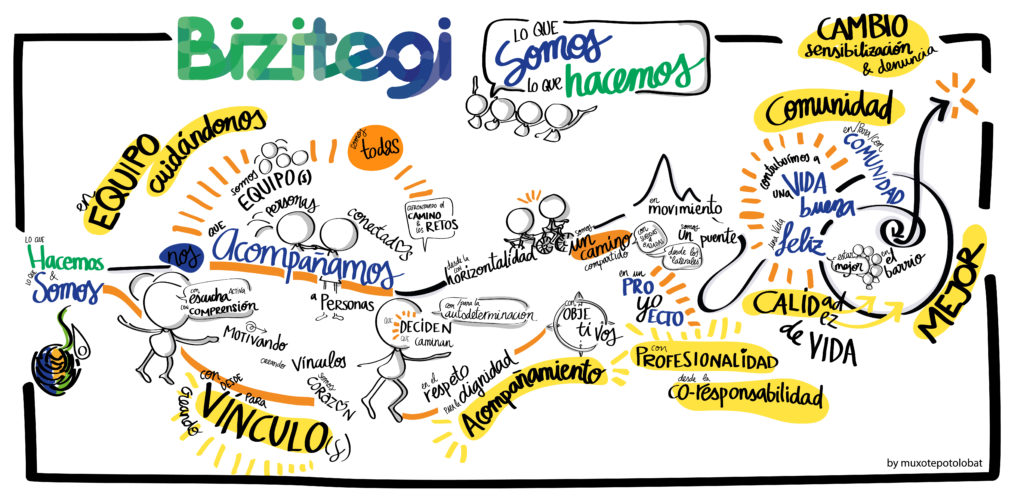 Bizitegi
LO QUE
Somos
Lo QUE hacemos
CAMBIO
sensibilización
& denuncia
en EQUIPO
cuidándonos
somos
EQUIPO(S)
personas
somos
todas
conectadas
CAMINO
& LOS RETOS
LO QUE
Hacemos
&
LO QUE
Somos
nos
QUE
Acompañamos
a PERSONAS
con
escucha ACTIVA
con COMPRENSIÓN
MOTIVANDO
creando
Vínculos
somos
CORAZÓN
CON
DESDE
PARA
Creando
VÍNCULO(s)
con/para la
autodeterminación
QUE DECIDEN
QUE caminan
en el
respeto
PARA la dignidad
Acompañamiento
desde la
con
horizontalidad
somos
un
camino
compartido
con
OBJE
ti
VOS
en
movimiento
somos
UN
puente
con SUBIDAS
& BAJADAS
desde los
laterales
en un
PRO
yo
ECTO
con
PROFESIONALIDAD
desde la
co-responsabilidad
Comunidad
en/para/con
COMUNIDAD
contribuimos a
UNA
VIDA
buena
una Vida
feliz
estar
mejor
en el
barrio
CALIDad
ez
de VIDA
MEJOR
by muxotepotolobat